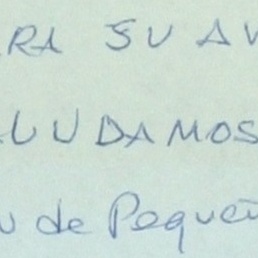 ARA SU AV
AUUDAMOS
u de Pequeñ